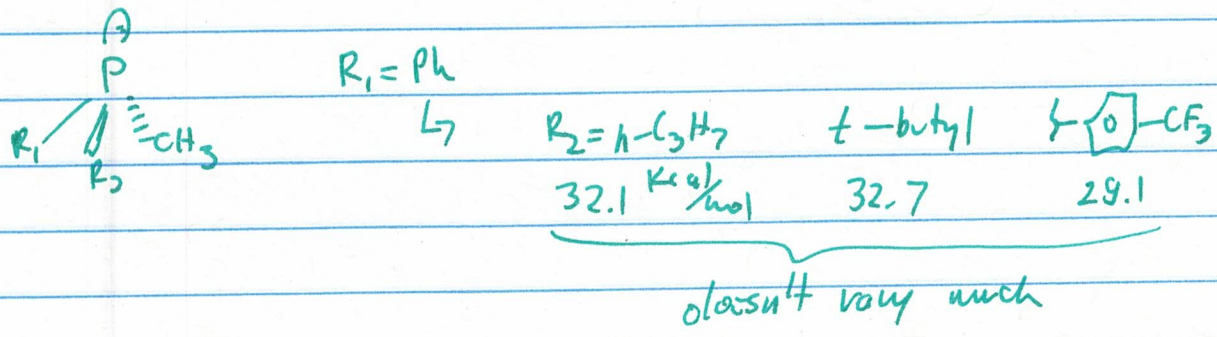 P
R₁ = Ph
R₁ R₂ CH₃
↳ R₂ = n-C₃H₇ t-butyl CF₃
32.1 kcal/mol 32.7 29.1
doesn't vary much